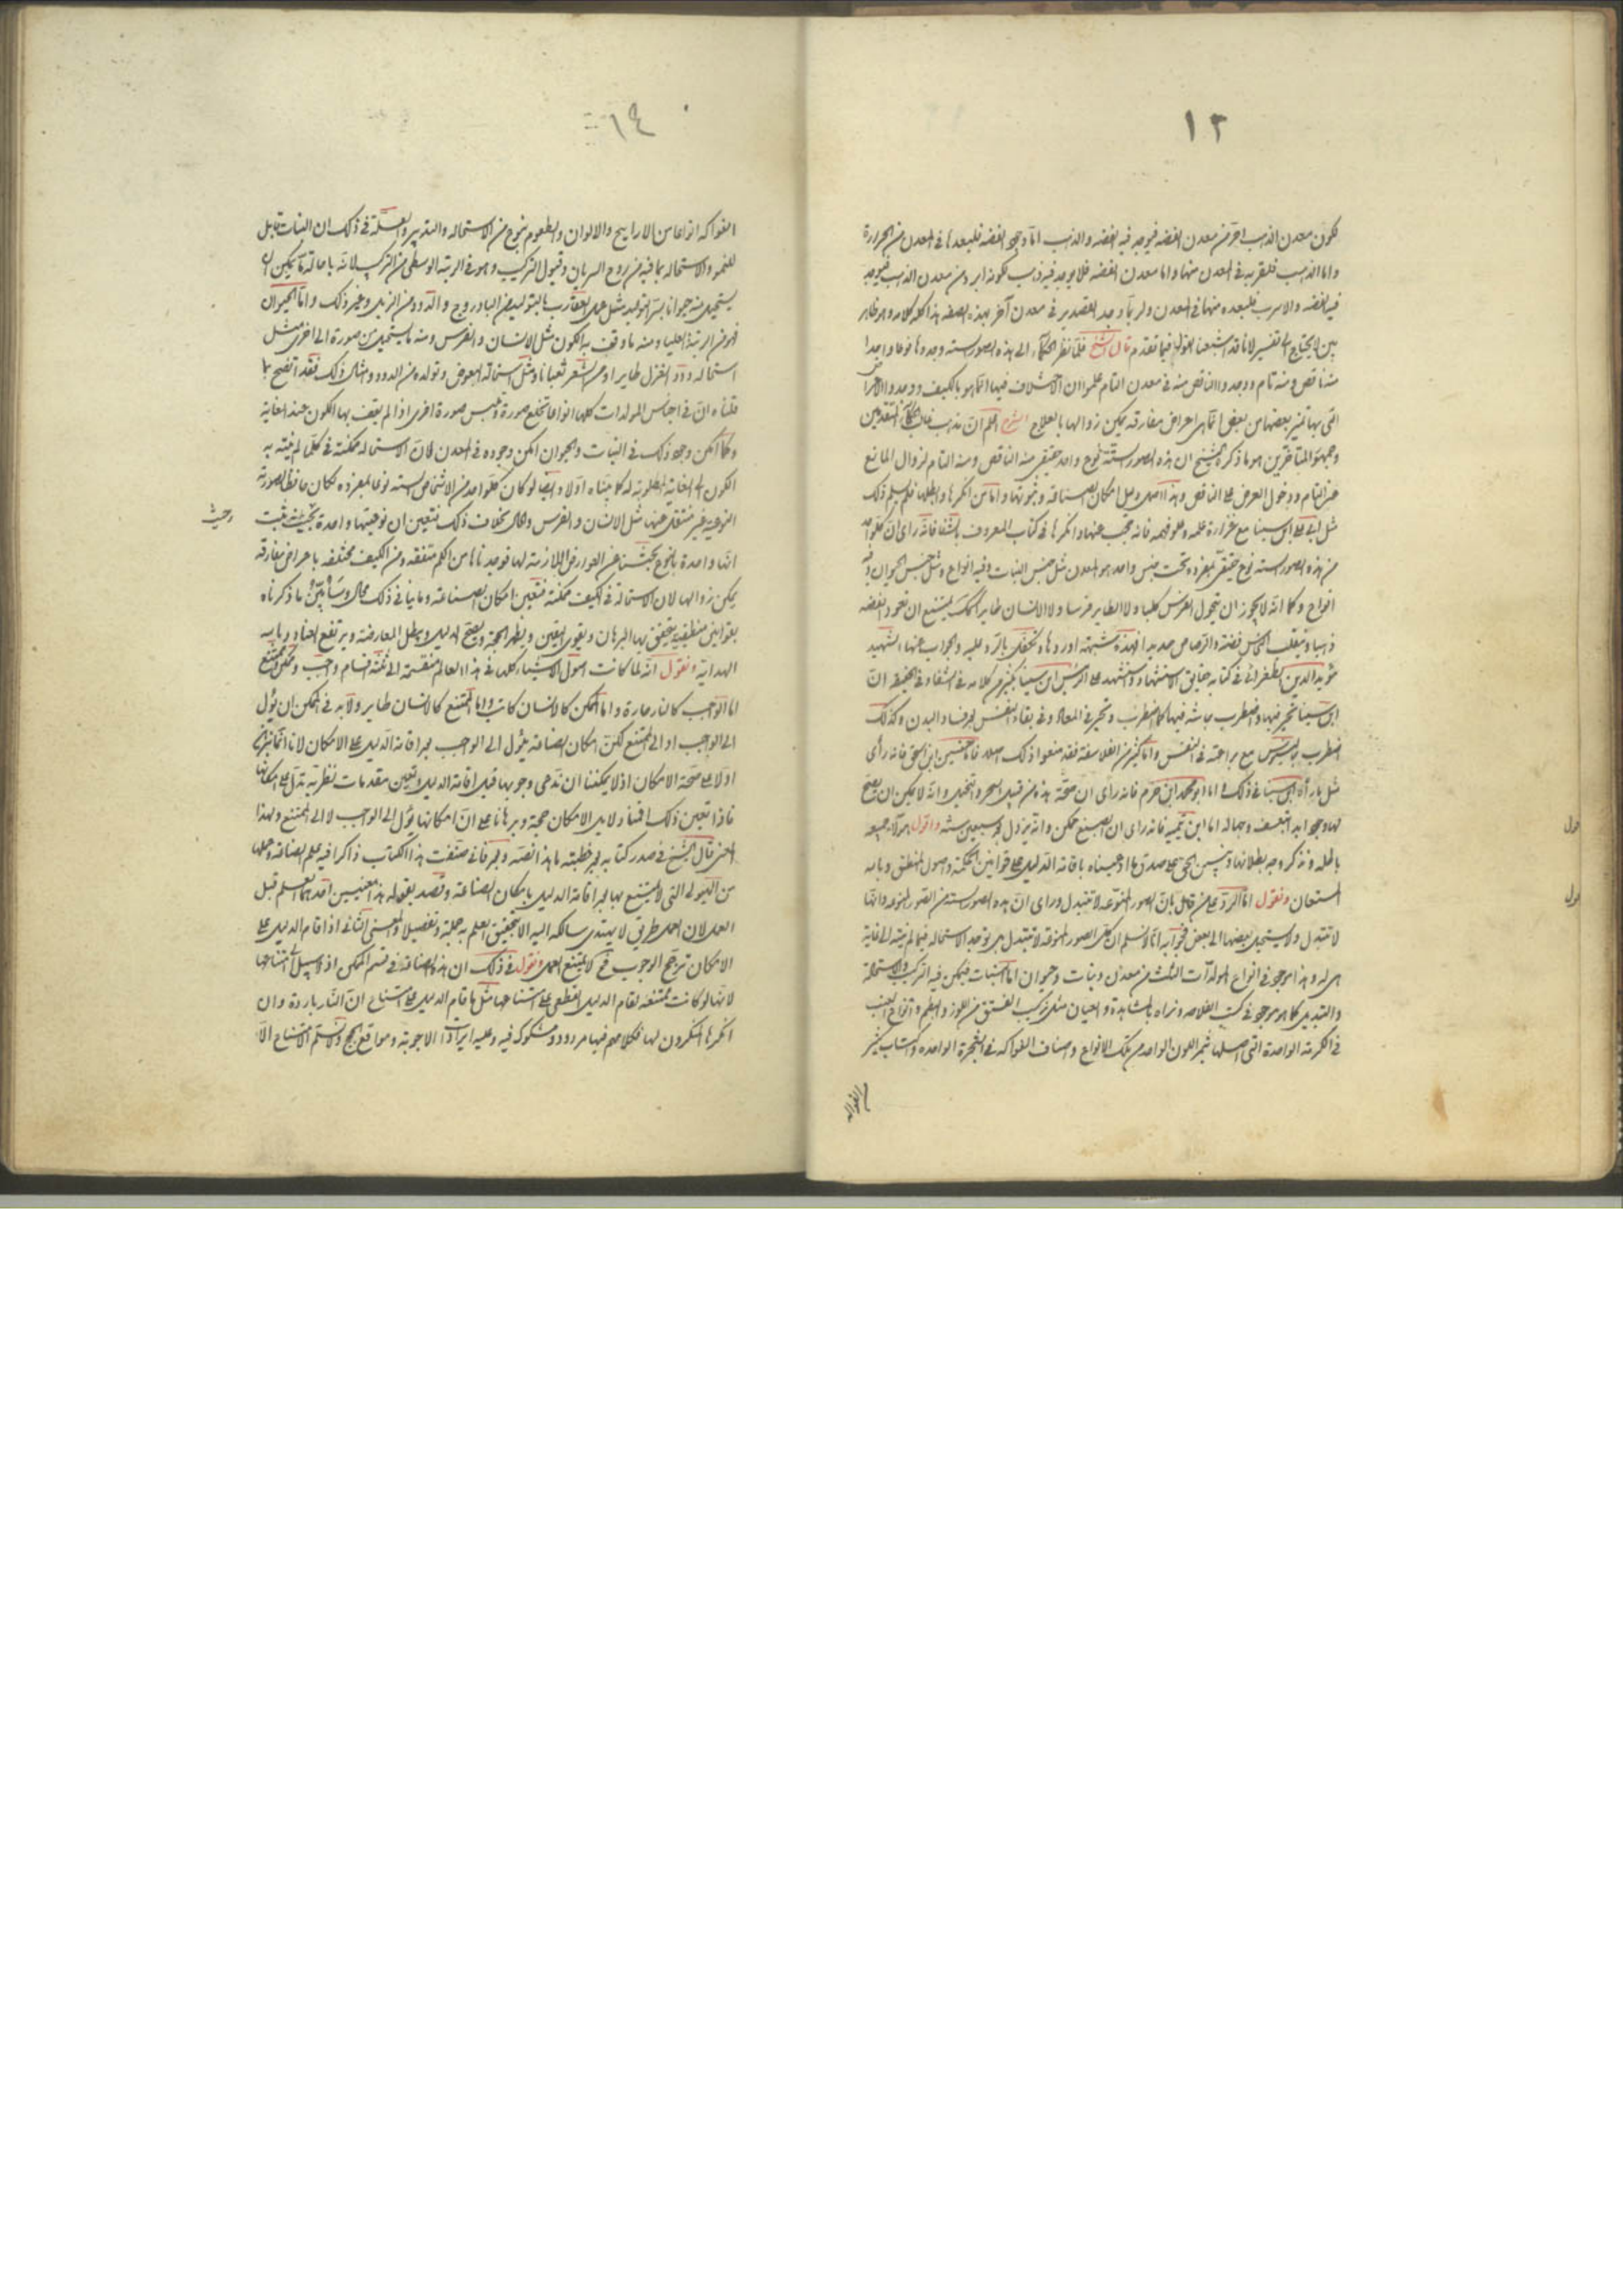 ١٣
لكون معدن الذهب احرّ من معدن الفضه فيوجد فيه الفضه والذهب امّا وجود الفضه فلبعدها فى المعدن من الحرارة
واما الذهب فلقربه فى المعدن منها واما معدن الفضه فلا يوجد فيه ذهب لكونه ابرد من معدن الذهب فيوجد
فيه الفضه والاسرب فلبعده منها فى المعدن ولربما وجد القصدير فى معدن آخر بهذه الصفه هذا كله كلامه وهو ظاهر
بين لا يحتاج الى تفسير لانا قد اشبعنا القول فيما تقدم قال الشيخ فلمّا نظر الحكماء الى هذه الصور الستّه وجدوها نوعا واحدا
منه ناقص ومنه تام ووجدوا الناقص منه فى معدن التام علموا ان الاختلاف فيها انّما هو بالكيف ووجدوا الاعراض
التى بها تميز بعضها من بعض انّما هى اعراض مفارقه يمكن زوالها بالعلاج الشرح اعلم انّ مذهب غالب الحكماء المتقدمين
وجمهور المتاخرين هو ما ذكره الشيخ ان هذه الصور الستّة نوع واحد حقيقى منه الناقص ومنه التام لزوال المانع
عن التام ودخول العرض على الناقص وهذا اصل دليل امكان الصناعة وثبوتها واما من انكرها وابطلها فلم يسلم ذلك
مثل ابى على ابن سينا مع غزارة علمه وعلو فهمه فانه عجب عنها وانكرها فى كتاب المعروف بالشفا فانّه راى انّ كلّ واحد
من هذه الصور الستّه نوع حقيقىّ بمفرده تحت جنس واحد هو المعدن مثل جنس النبات وفيه انواع ومثل جنس الحيوان وفيه
انواع وكما انّه لا يجوز ان يتحول الفرس كلبا ولا الطاير فرسا ولا الانسان طايرا كذلك يمتنع ان تعود الفضه
ذهبا وينقلب النحاس فضة والرصاص حديد افهذه شبهته اوردها وتكفل بالرد عليه والجواب عنها الشهيد
مؤيد الدين الطغرائى فى كتابه حقايق الاستشهاد واستشهد على الرئيس ابن سينا بكثير من كلامه فى الشفاء وفى الحقيقة انّ
ابن سينا تحيّر فيها واضطرب جاشه فيها كما اضطرب وتحير فى المعاد وفى بقاء النفس بعد فساد البدن وكذلك
اضطرب جالينوس مع براعته فى النفس واما كثير من الفلاسفة فقد منعوا ذلك اصلا فاما حنين ابن اسحق فانه رأى
مثل ما رآه ابن سينا فى ذلك واما ابو محمد ابن حزم فانه رأى ان صحّة هذه من قبيل السحر والتخييل وانّه لا يمكن ان يصحّ
لها وجود ابدا بتعسف وجهاله اما ابن تيميه فانه راى ان الصبغ ممكن وانه يزول بعد سبعين سنه واقول هؤلاء جميعه
بالجمله ونذكر وجه بطلانها ونبين الحق على صدق ما ادعيناه باقامة الدليل على قوانين الحكمة واصول المنطق وبالله
المستعان ونقول امّا الردّ على من قال بانّ الصور النوعيّه لا تتبدل وراى انّ هذه الصور الستّه من الصور النوعيه وانّها
لا تتبدل ولا يستحيل بعضها الى بعض فجوابه انّا لا نسلم ان كل الصور النوعيّة لا تتبدل بل يوجد الاستحاله فيما لم ينته الى غاية
هى له وهذا موجود فى انواع المولدات الثلث من معدن ونبات وحيوان امّا النبات فيمكن فيه التركيب والاستحالة
والتبديل كما هو موجود فى كتب الفلاحه ونراه بالمشاهدة والعيان مثل تركيب الفستق من اللوز والبطم وانواع العنب
فى الكرمة الواحدة التى اصلها ثمر اللون الواحد من تلك الانواع واصناف الفواكه فى الشجرة الواحده واكتساب كثير
الفواكه
١٤
الفواكه انواعا من الاراييح والالوان والطعوم بنوع من الاستحاله والتدبير والعلّة فى ذلك ان النبات قابل
للنمو والاستحاله بما فيه من روح السريان وقبول التركيب وهو فى الرتبة الوسطى من التركيب لانّه باحالة ما يمكن ان
يستحيل منه حيوانا بسرّ التوليد مثل عمل العقارب بالبتوليد من البادروج والدود من الزبل وغير ذلك وامّا الحيوان
فهو فى الرتبة العليا ومنه ما وقف به الكون مثل الانسان والفرس ومنه ما يستحيل من صورة الى اخرى مثل
استحاله دود القزّ طايرا وعمل الشعر ثعبانا ومثل استحالة البعوض وتولده من الدود وامثال ذلك فقد اتضح بما
قلناه انّ فى اجناس المولدات كلها انواعا تخلع صورة وتلبس صورة اخرى اذا لم يقف بها الكون عند الغاية
وكما امكن وجود ذلك فى النبات والحيوان امكن وجوده فى المعدن لانّ الاستحاله ممكنة فى كلّما لم ينته به
الكون الى الغاية المطلوبة له كما بيّناه اولا وايضا لو كان كل واحد من الاشخاص الستّه نوعا بمفرده لكان حافظا لصورته
النوعية غير منتقل عنها مثل الانسان والفرس والحال بخلاف ذلك فتعين ان نوعيتها واحدة بحيث ثبت
وحيث
انّها واحدة بالنوع بحثنا عن العوارض اللازمة لها فوجدناها من الكم متفقه ومن الكيف مختلفه باعراض مفارقه
يمكن زوالها لان الاستحالة فى الكيف ممكنة فتعين امكان الصناعة وما ينافى ذلك محال وسأبيّن ما ذكرناه
بقوانين منطقية يتحقق بها البرهان ويقوى اليقين ويظهر الحجة ويصح الدليل ويبطل المعارضة ويرتفع العناد وبالله
الهداية ونقول انّه لما كانت اصول الاشياء كلها فى هذا العالم منقسمة الى ثلثة اقسام واجب وممكن وممتنع
اما الواجب كالنار حارة واما الممكن كالانسان كاتب واما الممتنع كالانسان طاير ولا بد فى الممكن ان يؤل
الى الواجب او الى الممتنع لكنّ امكان الصناعة يؤل الى الواجب بعد اقامة الدليل على الامكان لانا انّما نبرهن
اولا على صحّة الامكان اذ لا يمكننا ان ندعى وجوبها قبل اقامة الدليل وتعيين مقدمات نظرية تدلّ على امكانها
فاذا تعين ذلك اقمنا دلايل الامكان حجة وبرهانا على انّ امكانها يؤل الى الواجب لا الى الممتنع ولهذا
المعنى قال الشيخ فى صدر كتابه بعد خطبته ما هذا نصّه وبعد فانى صنّفت هذا الكتاب ذاكرا فيه علم الصناعة وعملها
من الهيولى التى لا يمتنع بها بعد اقامة الدليل بامكان الصناعة وقصد بقوله هذا معنيين احدهما العلم قبل
العمل لان العمل طريق لا يهتدى سالكه اليه الا بتحقيق العلم به جملة وتفصيلا والمعنى الثانى اذا اقام الدليل على
الامكان ترجح الوجوب فح لا يمتنع العمل ونقول فى ذلك ان هذه الصناعة فى قسم الممكن اذ لا سبيل الى امتناعها
لانّها لو كانت ممتنعه لقام الدليل القطعى على امتناعها مثل ما قام الدليل على امتناع انّ النّار باردة وان
انكرها المنكرون لها فكلامهم فيها مردود ومشكوك فيه وعليه ايرادات الاجوبة ومواقع الحجج ولا نسلّم الامتناع الا